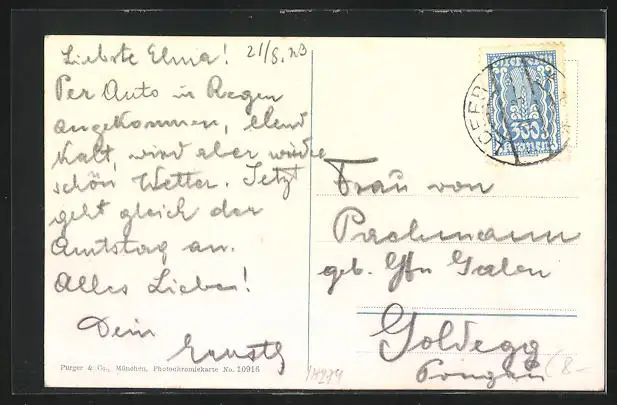 Liebste Elma! 21/8.23
Per Auto in Regen
angekommen, elend
kalt, wird aber wieder
schön Wetter. Jetzt
geht gleich der
Amtstag an.
Alles Liebe!
Dein
Ernst
Purger & Co., München, Photochromiekarte No. 10916
14274
300
KRONEN
Frau von
Pachmann
geb. Gfn Galen
Goldegg
Pongau
8-